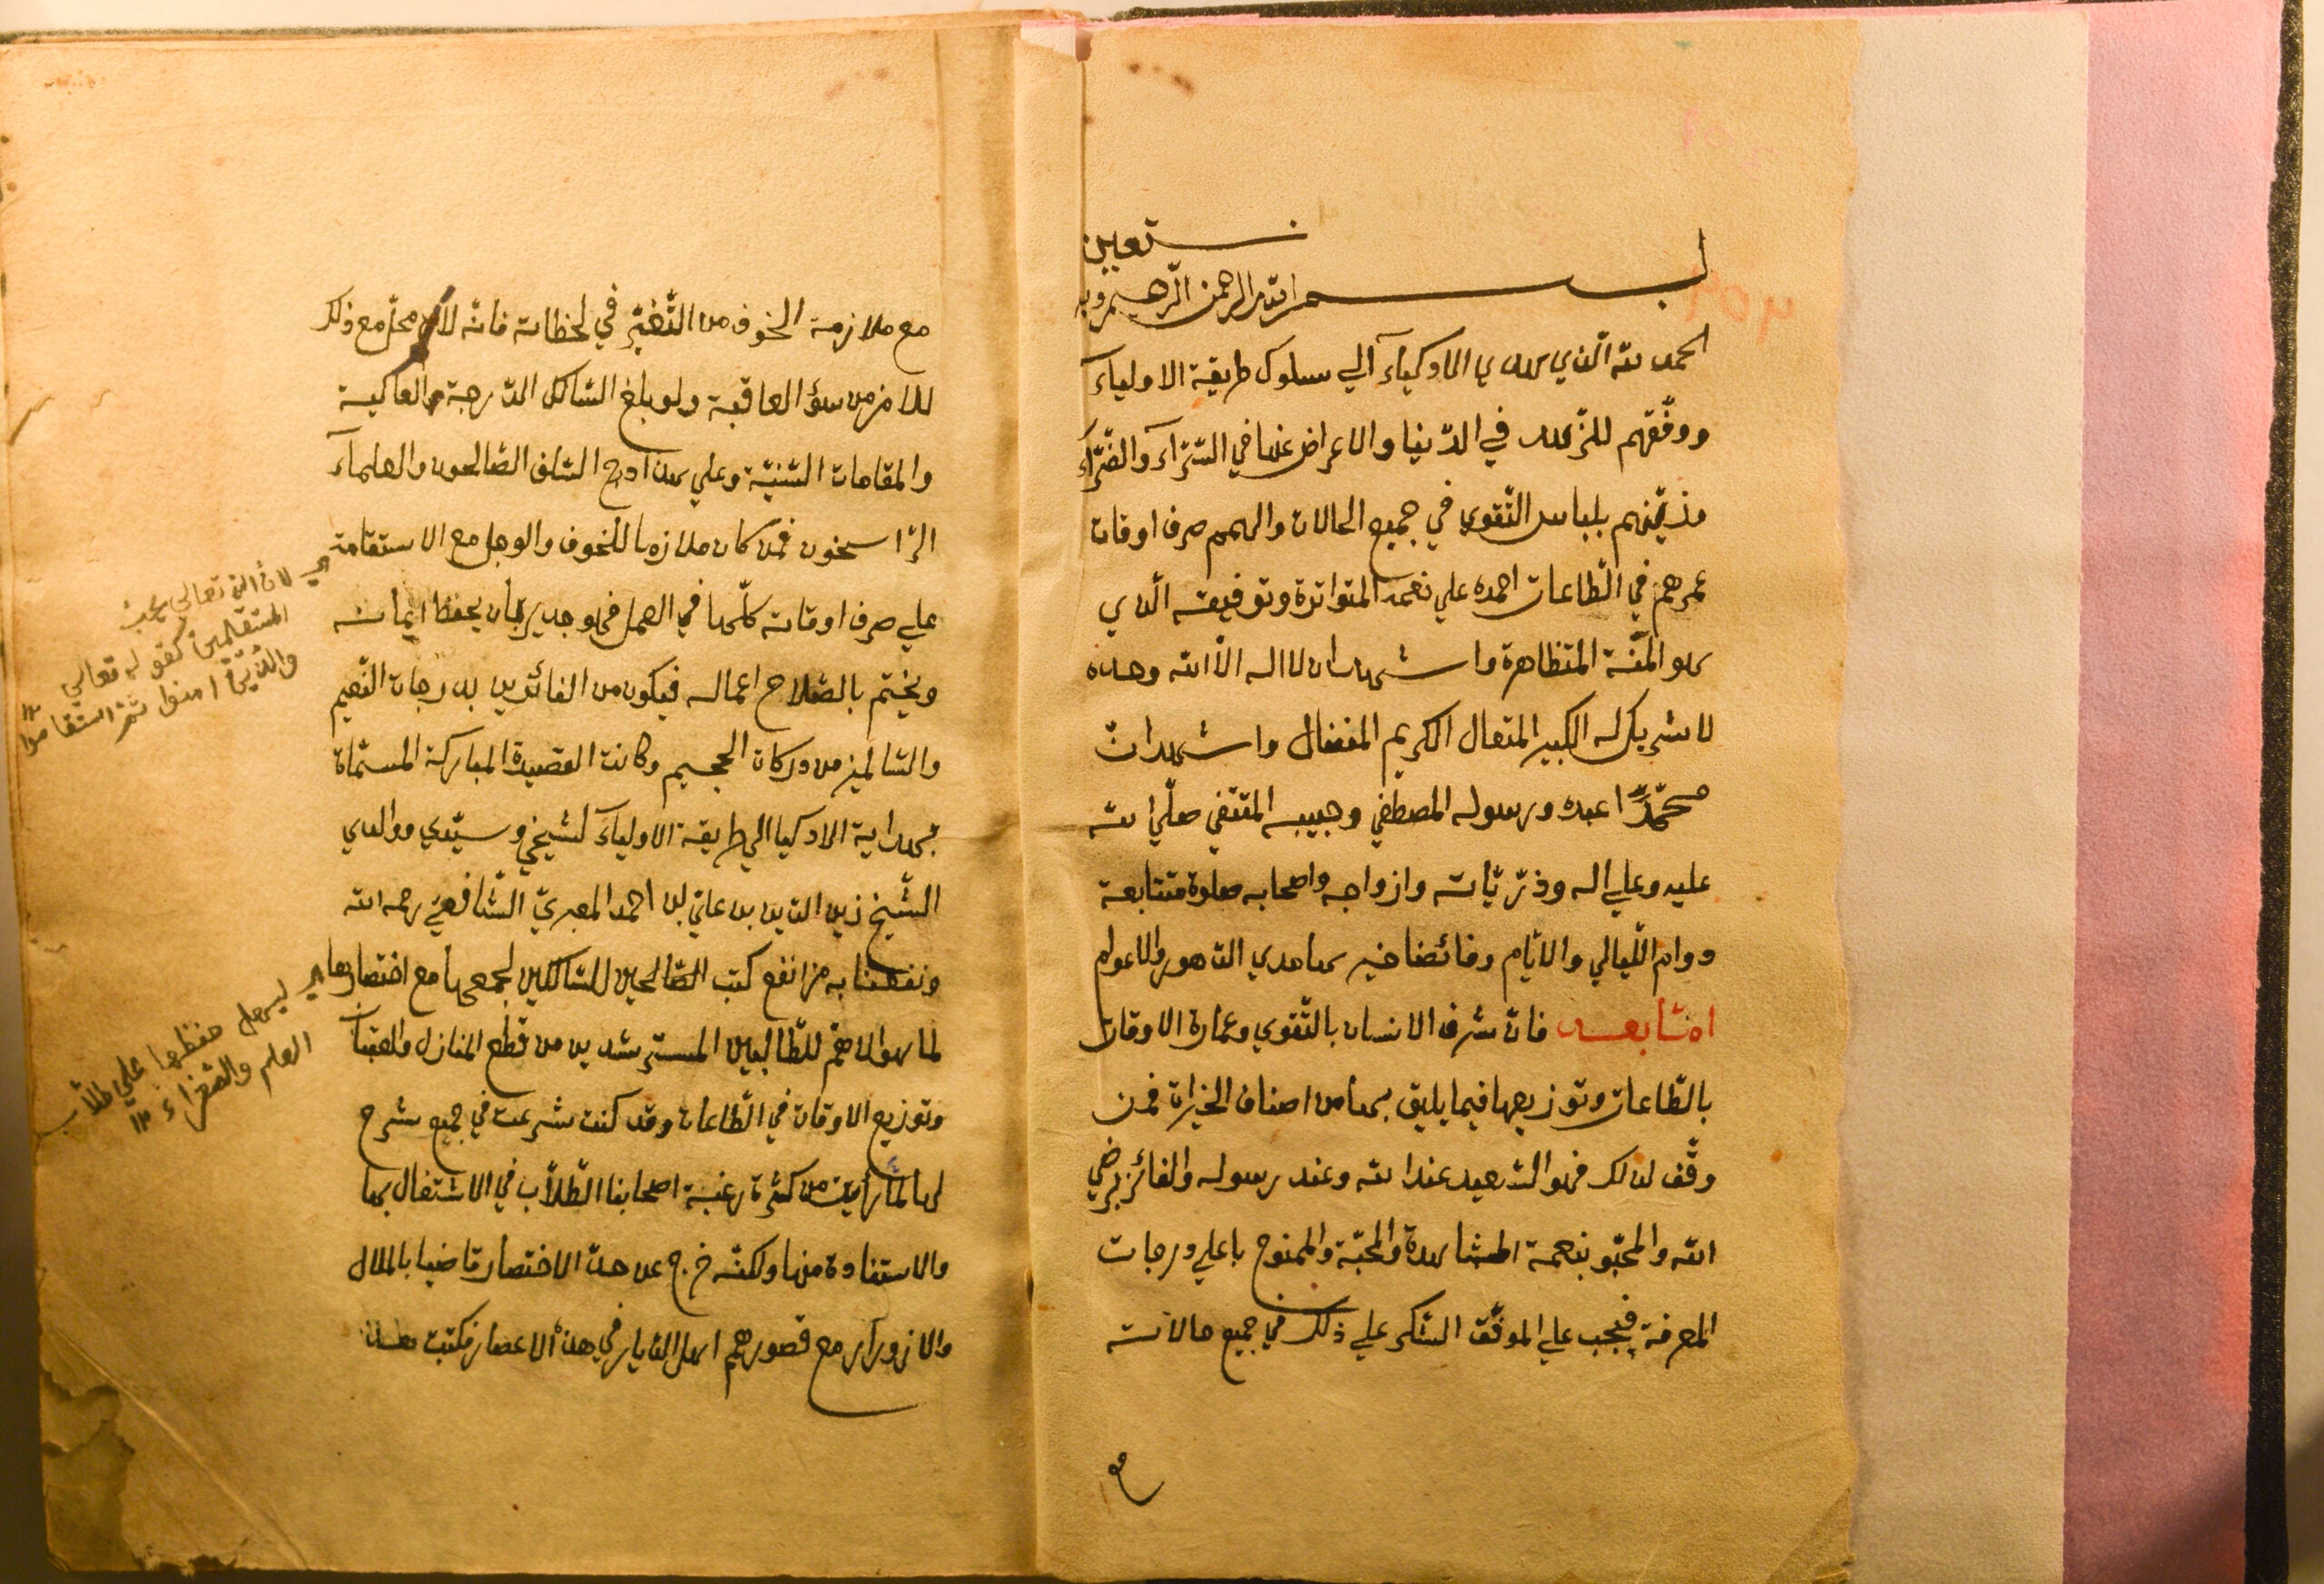 نستعين
بسم الله الرحمن الرّحيم وبه
الحمد لله الّذي هدي الاذكيآء الي سلوك طريقة الاوليآء
ووفّقهم للزّهد في الدّنيا والاعراض عنها في السّرّآء والضّرّآء
وزيّنهم بلباس التّقوي في جميع الحالات والهمهم صرف اوقات
عمرهم في الطّاعات احمده علي نعمه المتواترة وتوفيقه الّذي
هو المنّة المتظاهرة واشهد ان لا اله الّا الله وحده
لا شريك له الكبير المتعال الكريم المفضال واشهد انّ
محمّدًا عبده ورسوله المصطفي وحبيبه المقتفي صلّي الله
عليه وعلي اله وذرّيّاته وازواجه واصحابه صلوة متتابعة
دوام اللّيالي والايّام وفائضا خيرها مدي الدّهور والاعوام
امّا بعد فانّ شرف الانسان بالتّقوي وعمارة الاوقات
بالطّاعات وتوزيعها فيما يليق بها من اصناف الخيرات فمن
وفّق لذلك فهو السّعيد عند الله وعند رسوله والفائز برضي
الله والمحبّو بنعمة المشاهدة والمحبّة والممنوح باعلي درجات
المعرفة فيجب علي الموفّق الشّكر علي ذلك في جميع حالاته
مع
مع ملازمة الخوف من التّغيّر في لحظاته فانّه لا محلّ مع ذلك
للامن من سوٴ العاقبة ولو بلغ السّالك الدّرجة العاكية
والمقامات السّنيّة وعلي هذا درج السّلف الصّالحون والعلمآء
الرّاسخون فمن كان ملازما للخوف والوجل مع الاستقامة
علي صرف اوقاته كلّها في العمل فهو جدير بأن يحفظ ايمانه
ويختم بالصّلاح اعماله فيكون من الفائزين بدرجات النّعيم
والسّالمين من دركات الجحيم وكانت القصيدة المباركة المسمّاة
بهداية الاذكيا الي طريقة الاوليآء لشيخي وسيّدي ووالدي
الشّيخ زين الدّين بن عليّ بن احمد المعبريّ الشّافعيّ رحمه الله
ونفعنا به من انفع كتب الصّالحين للسّالكين لجمعها مع اختصارها
لما هو الاهمّ للطّالبين المسترشدين من قطع المنازل والعقبات
وتوزيع الاوقات في الطّاعات وقد كنت شرعت في جميع شرح
لها لمّا رأيت من كثرة رغبة اصحابنا الطّلّاب في الاشتغال بها
والاستفادة منها ولكنّه خرج عن حدّ الاختصار قاضيا بالملال
والازورآر مع قصور همم اهل الدّيار في هذه الاعصار فكتبت هذا
اي لانّ الله تعالي يحبّ
المستقيمين كقوله تعالي
والّذين امنوا ثمّ استقاموا ١٢
اي ليسهل حفظها علي طلّاب
العلم والصّغراء ١٢